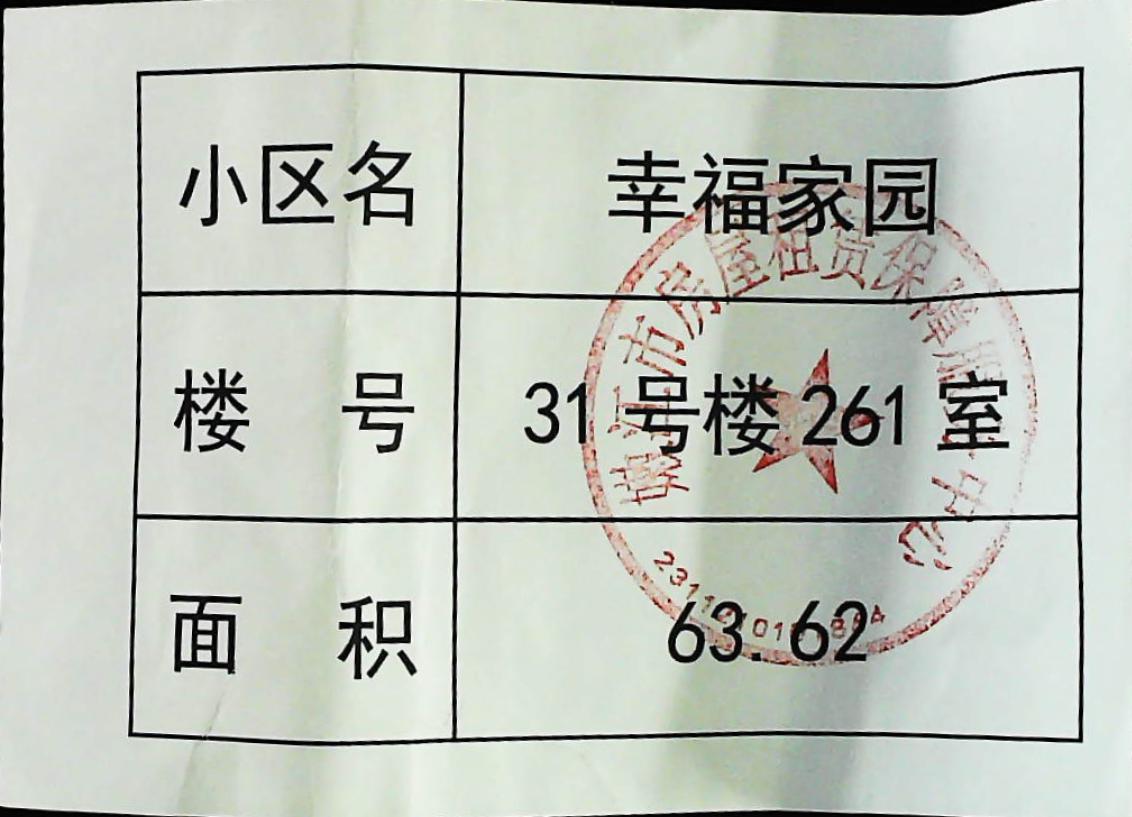 小区名 幸福家园
楼 号 31号楼261室
面 积 63.62
市房屋租赁保障服 中心